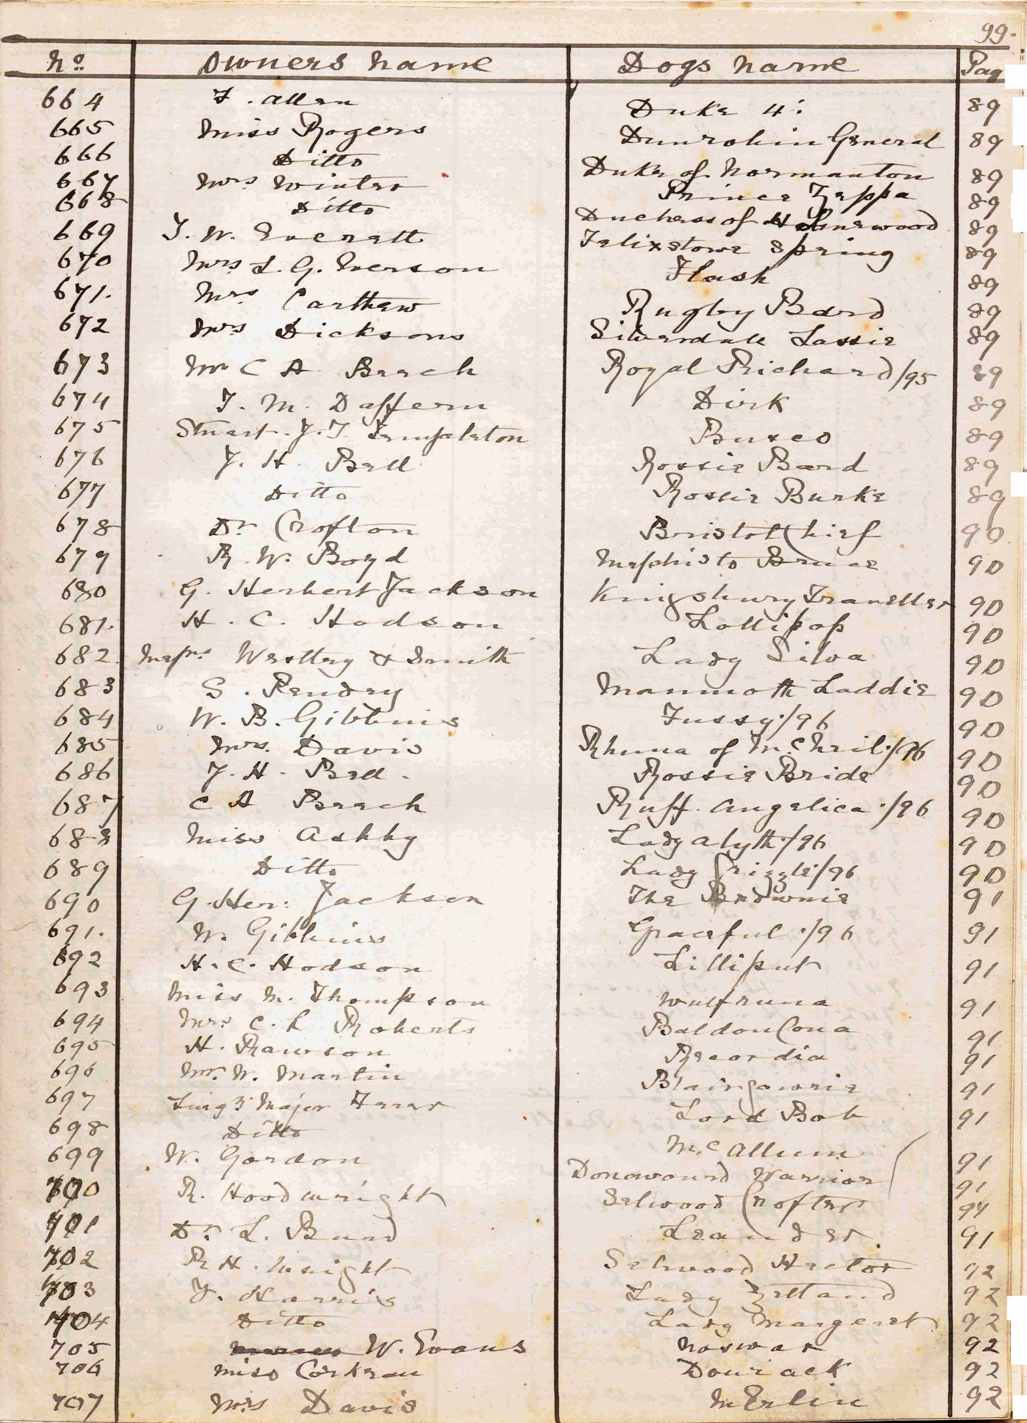 99.
No. Owners name Dogs name Pag
664 F. Allen Duke 4: 89
665 Miss Rogers Dunrobin General 89
666 Ditto Duke of Normanton 89
667 Mrs Winter Prince Zeppa 89
668 Ditto Duchess of 89
669 T. W. Everett Felixstowe Spring 89
670 Mrs L. G. Flash 89
671. Mrs Carthew Rugby Bard 89
672 Mrs Dicksons Silverdale Lassie 89
673 Mr C A Beach Royal Richard/95 89
674 T. M. Daffern Dirk 89
675 Stuart. J. T. Templeton Busco 89
676 J. H. Bell Rossie Bard 89
677 Ditto Rossie Burke 89
678 Dr Crofton Bristol Chief 90
679 R. W. Boyd Mephisto Bruce 90
680 G. Herbert Jackson Kingsbury Traveller 90
681. H. C. Hodson Lollipop 90
682. Messrs Westley & Smith Lady Silva 90
683 S. Pendry Mammoth Laddie 90
684 W. B. Gibbins Fussy./96 90
685 Mrs. Davis of McNeil./96 90
686 J. H. Bell. Rossie Bride 90
687 C A Beach Ruff Angelica ./96 90
688 Miss Ashby Lady Alyth./96 90
689 Ditto Lady Grizzle./96 90
690 G. Her: Jackson The Brownie 91
691. W. Gibbins Graceful ./96 91
692 H. C. Hodson Lilliput 91
693 Miss M. Thompson Wulfruna 91
694 Mrs C. L Roberts Baldon Cona 91
695 H. Rawson Recordia 91
696 Mr. W. Martin Blairgowrie 91
697 Major Lord Bob 91
698 Ditto McCallum
699 W. Gordon Warrior 91
700 R. Hoodwright Selwood Crofter 91
701 Dr L. Bund Leander. 91
702 R H. Wright Selwood Hector 92
703 J. Harris Lady Zetland 92
704 Ditto Lady Margeret 92
705 W. Evans 92
706 Miss Corkran 92
707 Mrs Davis Merlin 92